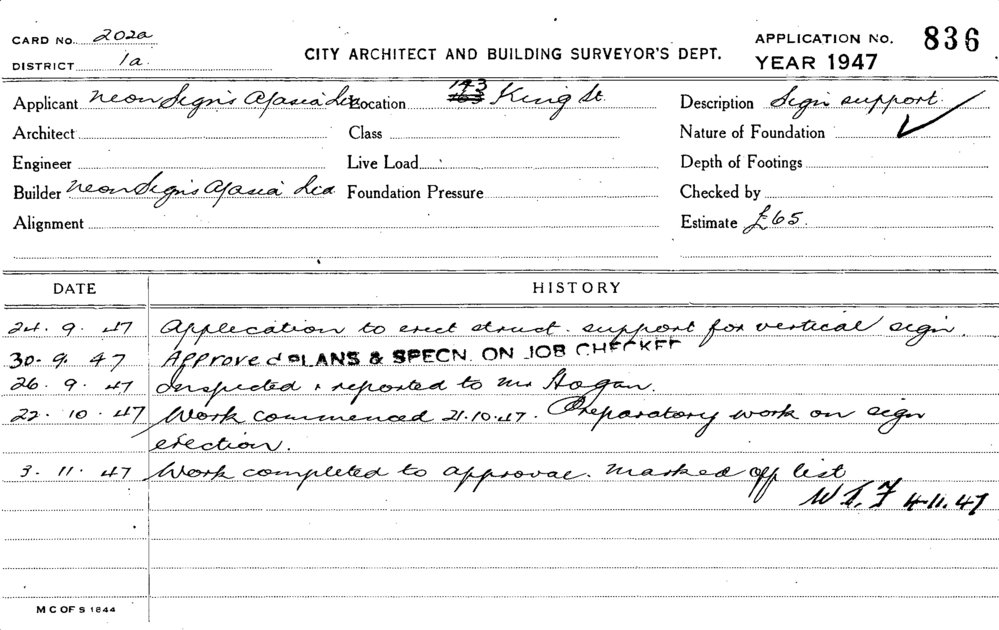 CARD No. 202a
DISTRICT 1a.
CITY ARCHITECT AND BUILDING SURVEYOR'S DEPT.
APPLICATION NO. 836
YEAR 1947
Applicant Neon Signs A/asia Ltd
Location 193 King St.
Description Sign support.
Architect
Class
Nature of Foundation
Engineer
Live Load
Depth of Footings
Builder Neon Signs A/asia Ltd
Foundation Pressure
Checked by
Alignment
Estimate £65.
DATE HISTORY
24.9.47 Application to erect struct. support for vertical sign.
30.9.47 Approved PLANS & SPECN. ON JOB CHECKED
26.9.47 Inspected & reported to Mr Hogan.
22.10.47 Work commenced 21.10.47. Preparatory work on sign
erection.
3.11.47 Work completed to approval. Marked off list
4.11.47
M C OF S 1844